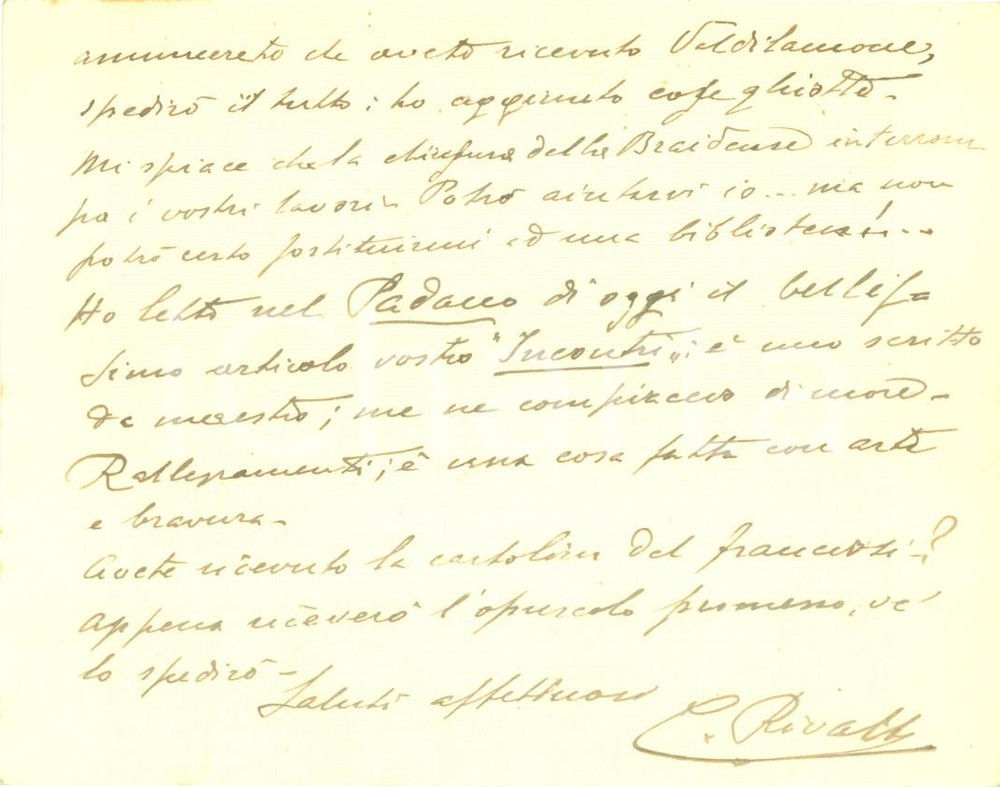 annuncerete che avete ricevuto Valdilamone,
spedirò il tutto; ho aggiunto cose ghiotte.
Mi spiace che la chiusura della Braidense interrom
pa i vostri lavori. Potrò aiutarvi io... ma non
potrò certo sostituirmi ad una biblioteca!...
Ho letto nel Padano di oggi il bellis
simo articolo vostro "Incontri„; è uno scritto
da maestro; me ne compiaccio di
Rallegramenti; è una cosa fatta con arte
e bravura.
Avete ricevuto la cartolina del ?
Appena riceverò l'opuscolo promesso, ve
lo spedirò -
Saluti affettuosi
C. Rivalta